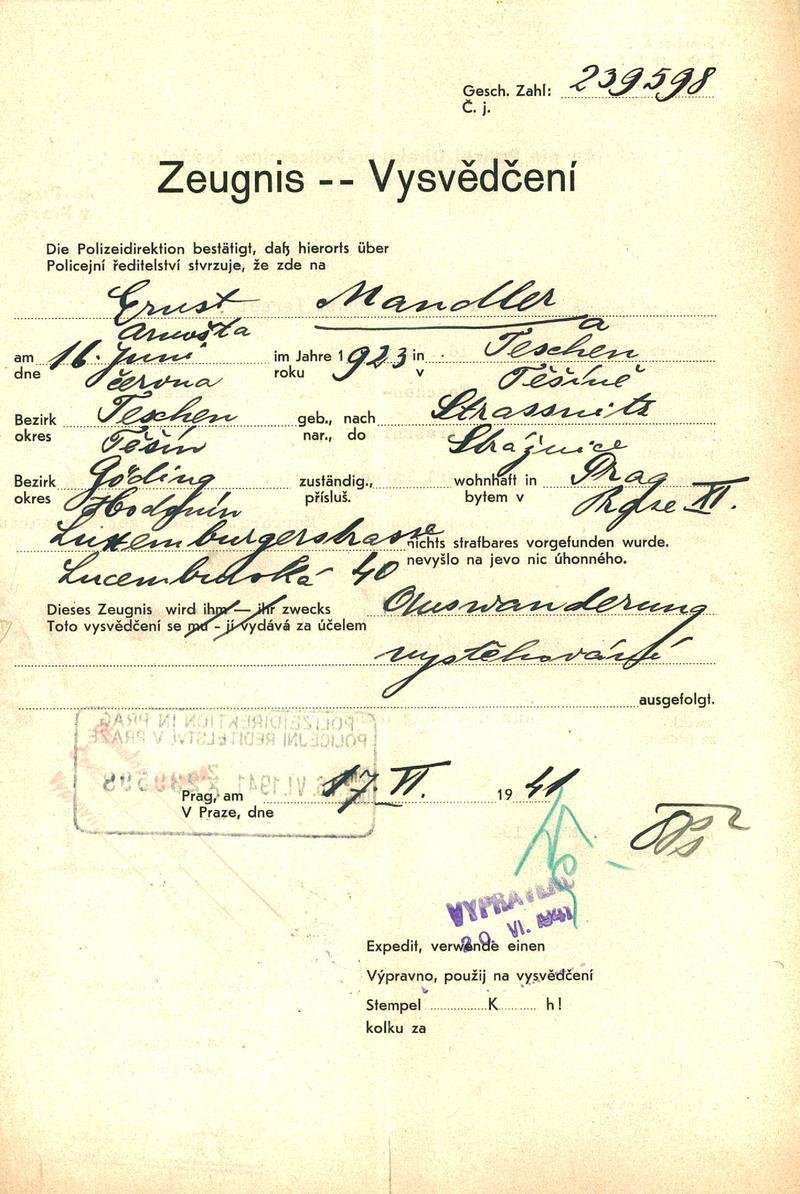 Gesch. Zahl: 239598
Č. j.
Zeugnis -- Vysvědčení
Die Polizeidirektion bestätigt, daß hierorts über
Policejní ředitelství stvrzuje, že zde na
Ernst Mandler
Arnošta a
am 16. Juni im Jahre 1923 in Teschen
dne června roku v Těšíně
Bezirk Teschen geb., nach Strassnitz
okres Těšín nar., do Strážnice
Bezirk Göding zuständig., wohnhaft in Prag
okres Hodonín přísluš. bytem v Praze XI.
Luxemburgerstrasse nichts strafbares vorgefunden wurde.
Lucemburská 40 nevyšlo na jevo nic úhonného.
Dieses Zeugnis wird ihm — ihr zwecks Auswanderung
Toto vysvědčení se mu - jí vydává za účelem
vystěhování
ausgefolgt.
POLIZEIDIREKTION IN PRAG
POLICEJNÍ ŘEDITELSTVÍ V PRAZE
VI. 1941 239598
Prag, am 17. VI. 1941
V Praze, dne
VYPRAVENO
20. VI. 1941
Expedit, verwende einen
Výpravno, použij na vysvědčení
Stempel K h!
kolku za